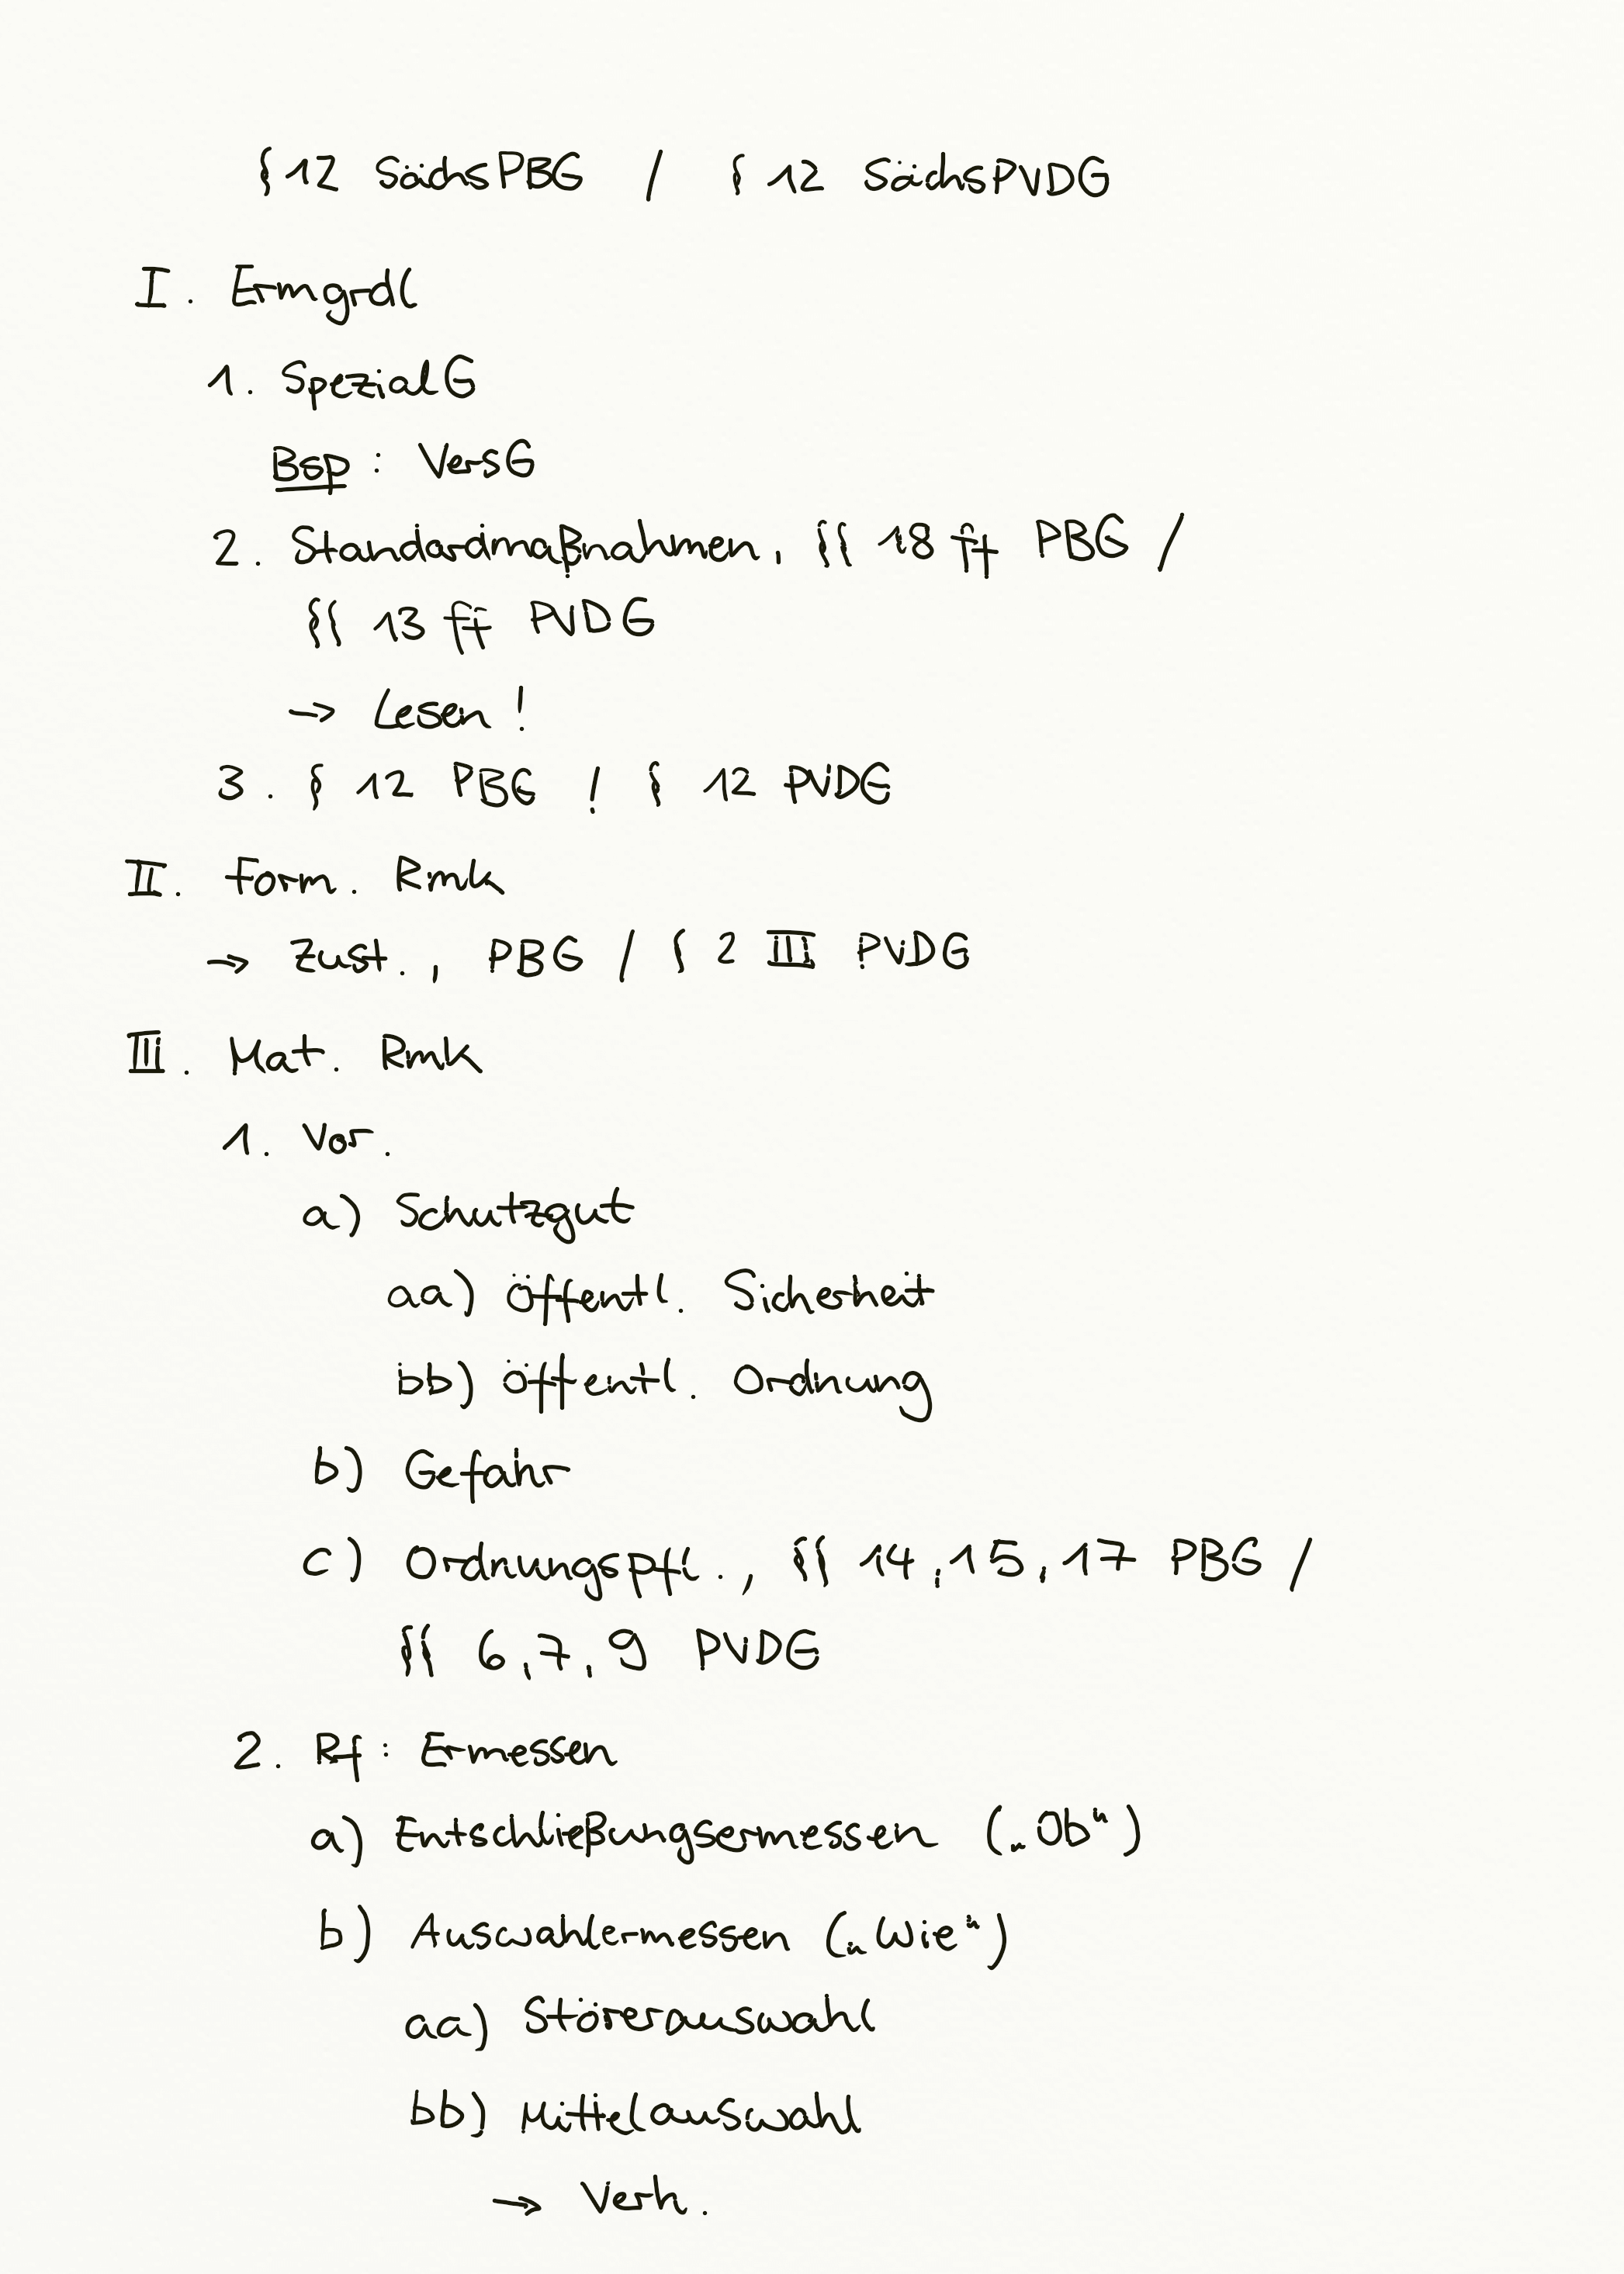 § 12 SächsPBG / § 12 SächsPVDG
I. Ermgrdl
1. SpezialG
Bsp: VersG
2. Standardmaßnahmen, §§ 18 ff PBG /
§§ 13 ff PVDG
→ Lesen!
3. § 12 PBG ! § 12 PVDG
II. Form. Rmk
→ Zust., PBG / § 2 III PVDG
III. Mat. Rmk
1. Vor.
a) Schutzgut
aa) öffentl. Sicherheit
bb) öffentl. Ordnung
b) Gefahr
c) Ordnungspfl., §§ 14, 15, 17 PBG /
§§ 6, 7, 9 PVDG
2. Rf: Ermessen
a) Entschließungsermessen („Ob“)
b) Auswahlermessen („Wie“)
aa) Störerauswahl
bb) Mittelauswahl
→ Verh.